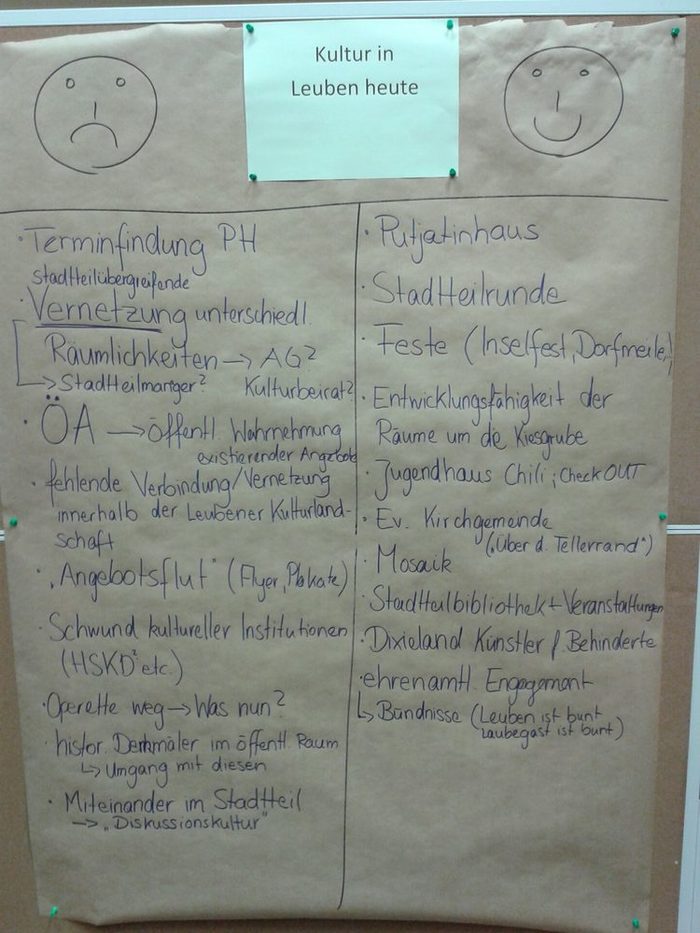 Kultur in
Leuben heute
· Terminfindung PH
stadtteilübergreifende
· Vernetzung unterschiedl.
Räumlichkeiten → AG?
↳ Stadtteilmanger? Kulturbeirat?
· ÖA → öffentl. Wahrnehmung
existierender Angebote
· fehlende Verbindung/Vernetzung
innerhalb der Leubener Kulturland-
schaft
· „Angebotsflut" (Flyer, Plakate)
· Schwund kultureller Institutionen
(HSKD? etc.)
· Operette weg → Was nun?
· histor. Denkmäler im öffentl. Raum
↳ Umgang mit diesen
· Miteinander im Stadtteil
→ „Diskussionskultur"
· Putjatinhaus
· Stadtteilrunde
· Feste (Inselfest, Dorfmeile,)
· Entwicklungsfähigkeit der
Räume um die Kiesgrube
· Jugendhaus Chili; CheckOUT
· Ev. Kirchgemeinde
(„Über d. Tellerrand")
· Mosaik
· Stadtteilbibliothek + Veranstaltungen
· Dixieland Künstler f. Behinderte
· ehrenamtl. Engagement
↳ Bündnisse (Leuben ist bunt
Laubegast ist bunt)